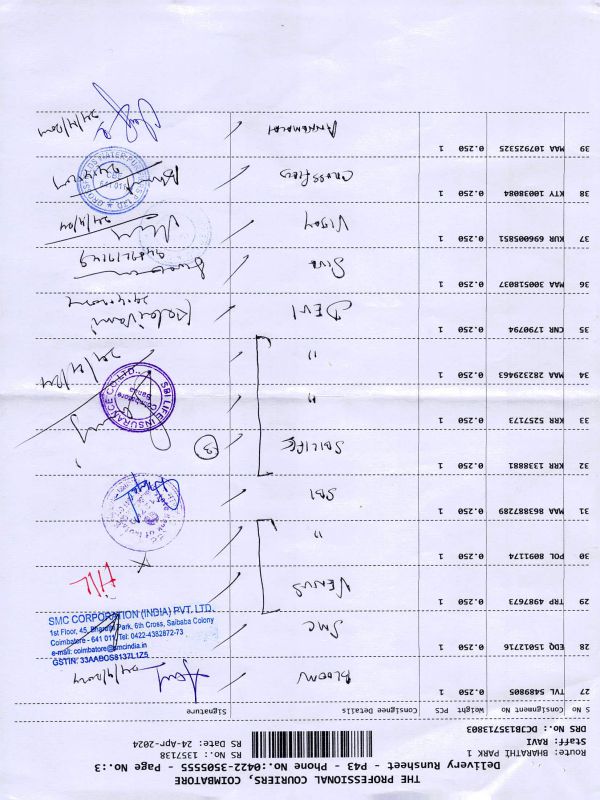 THE PROFESSIONAL COURIERS, COIMBATORE
Delivery Runsheet - P43 - Phone No:0422-3505555 - Page No.:3
Route: BHARATHI PARK 1
Staff: RAVI
DRS No.: DCJB135713803
RS No.: 1357138
RS Date: 24-Apr-2024
S No Consignment No Weight PCS Consignee Details Signature
27 TVL 5489805 0.250 1 BLOOM
28 EDQ 15012716 0.250 1 SMC
SMC CORPORATION (INDIA) PVT. LTD.
1st Floor, 45, Bharathi Park, 6th Cross, Saibaba Colony
Coimbatore - 641 011 Tel: 0422-4382872-73
e-mail: coimbatore@smcindia.in
GSTIN: 33AABCS8137L1Z5
29 TRP 4987673 0.250 1 VENUS
30 POL 8091174 0.250 1 "
31 MAA 863887289 0.250 1 SBI
32 KRR 1338881 0.250 1 SBILIFE 3
33 KRR 5257173 0.250 1 "
SBI LIFE INSURANCE CO. LTD.
Coimbatore
34 MAA 282329463 0.250 1 " 24/4/24
35 CNR 1790794 0.250 1 DEVI Kalaivani
36 MAA 300518037 0.250 1 Siva
37 KUR 696005851 0.250 1 Vijay 24/4/24
38 KTY 10038084 0.250 1 Crossfields
39 MAA 107925325 0.250 1 Annamalai 24/4/2024